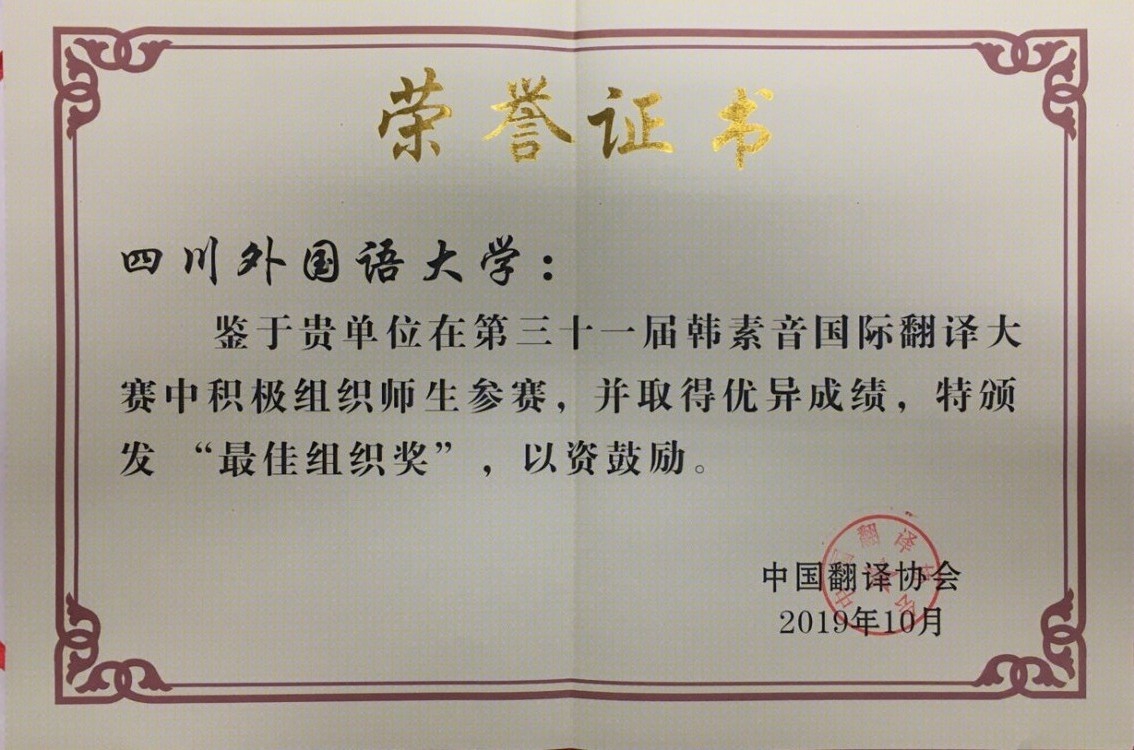 荣誉证书
四川外国语大学：
鉴于贵单位在第三十一届韩素音国际翻译大
赛中积极组织师生参赛，并取得优异成绩，特颁
发“最佳组织奖”，以资鼓励。
中国翻译协会
2019年10月
中国翻译协会